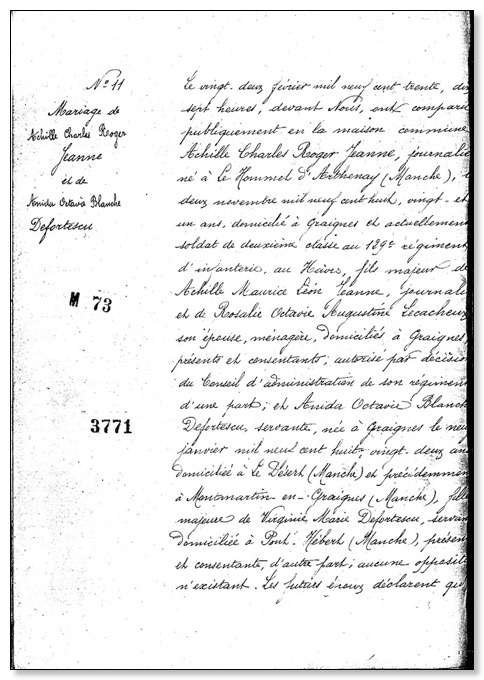 No 11
Mariage de
Achille Charles Roger
Jeanne
et de
Anida Octavie Blanche
Defortescu
M 73
3771
Le vingt-deux février mil neuf cent trente, dix
sept heures, devant Nous, ont comparu
publiquement en la maison commune
Achille Charles Roger Jeanne, journalie
né à Le Hommet d'Arthenay (Manche), l
deux novembre mil neuf cent huit, vingt-et
un ans, domicilié à Graignes et actuellement
soldat de deuxième classe au 129e régiment
d'infanterie, au Hâvre, fils majeur de
Achille Maurice Léon Jeanne, journali
et de Rosalie Octavie Augustine Lecacheux
son épouse, ménagère, domiciliés à Graignes,
présents et consentants; autorisé par décision
du Conseil d'administration de son régiment
d'une part; et Anida Octavie Blanch
Defortescu, servante, née à Graignes le neuf
janvier mil neuf cent huit, vingt-deux ans
domiciliée à Le Désert (Manche) et précédemmen
à Montmartin-en-Graignes (Manche), fille
majeure de Virginie Marie Defortescu, servan
domiciliée à Pont-Hébert (Manche), présen
et consentante, d'autre part; aucune oppositi
n'existant. Les futurs époux déclarent qu